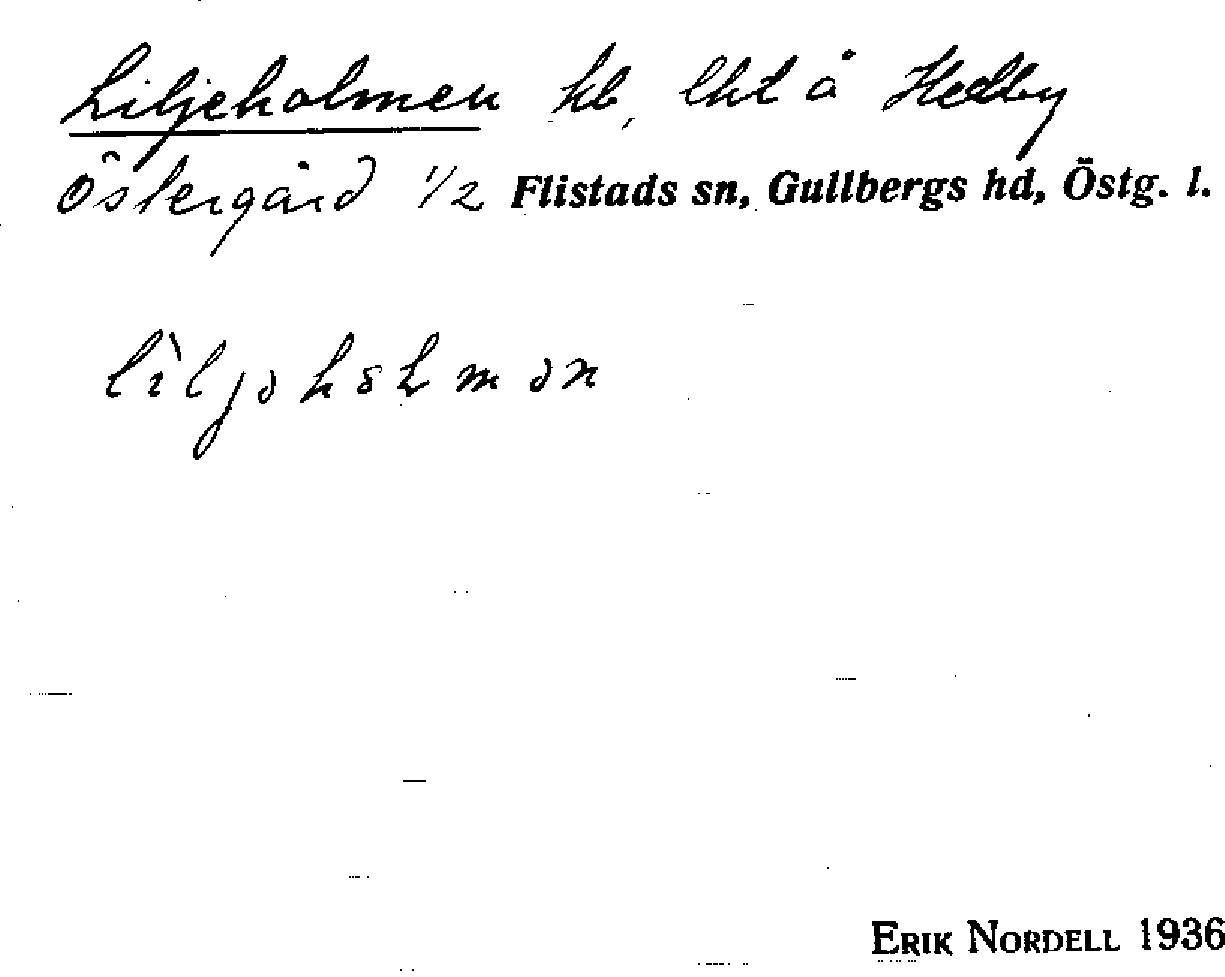 Liljeholmen hb, lht å Hedby
Östergård 1/2 Flistads sn, Gullbergs hd, Östg. l.
ERIK NORDELL 1936